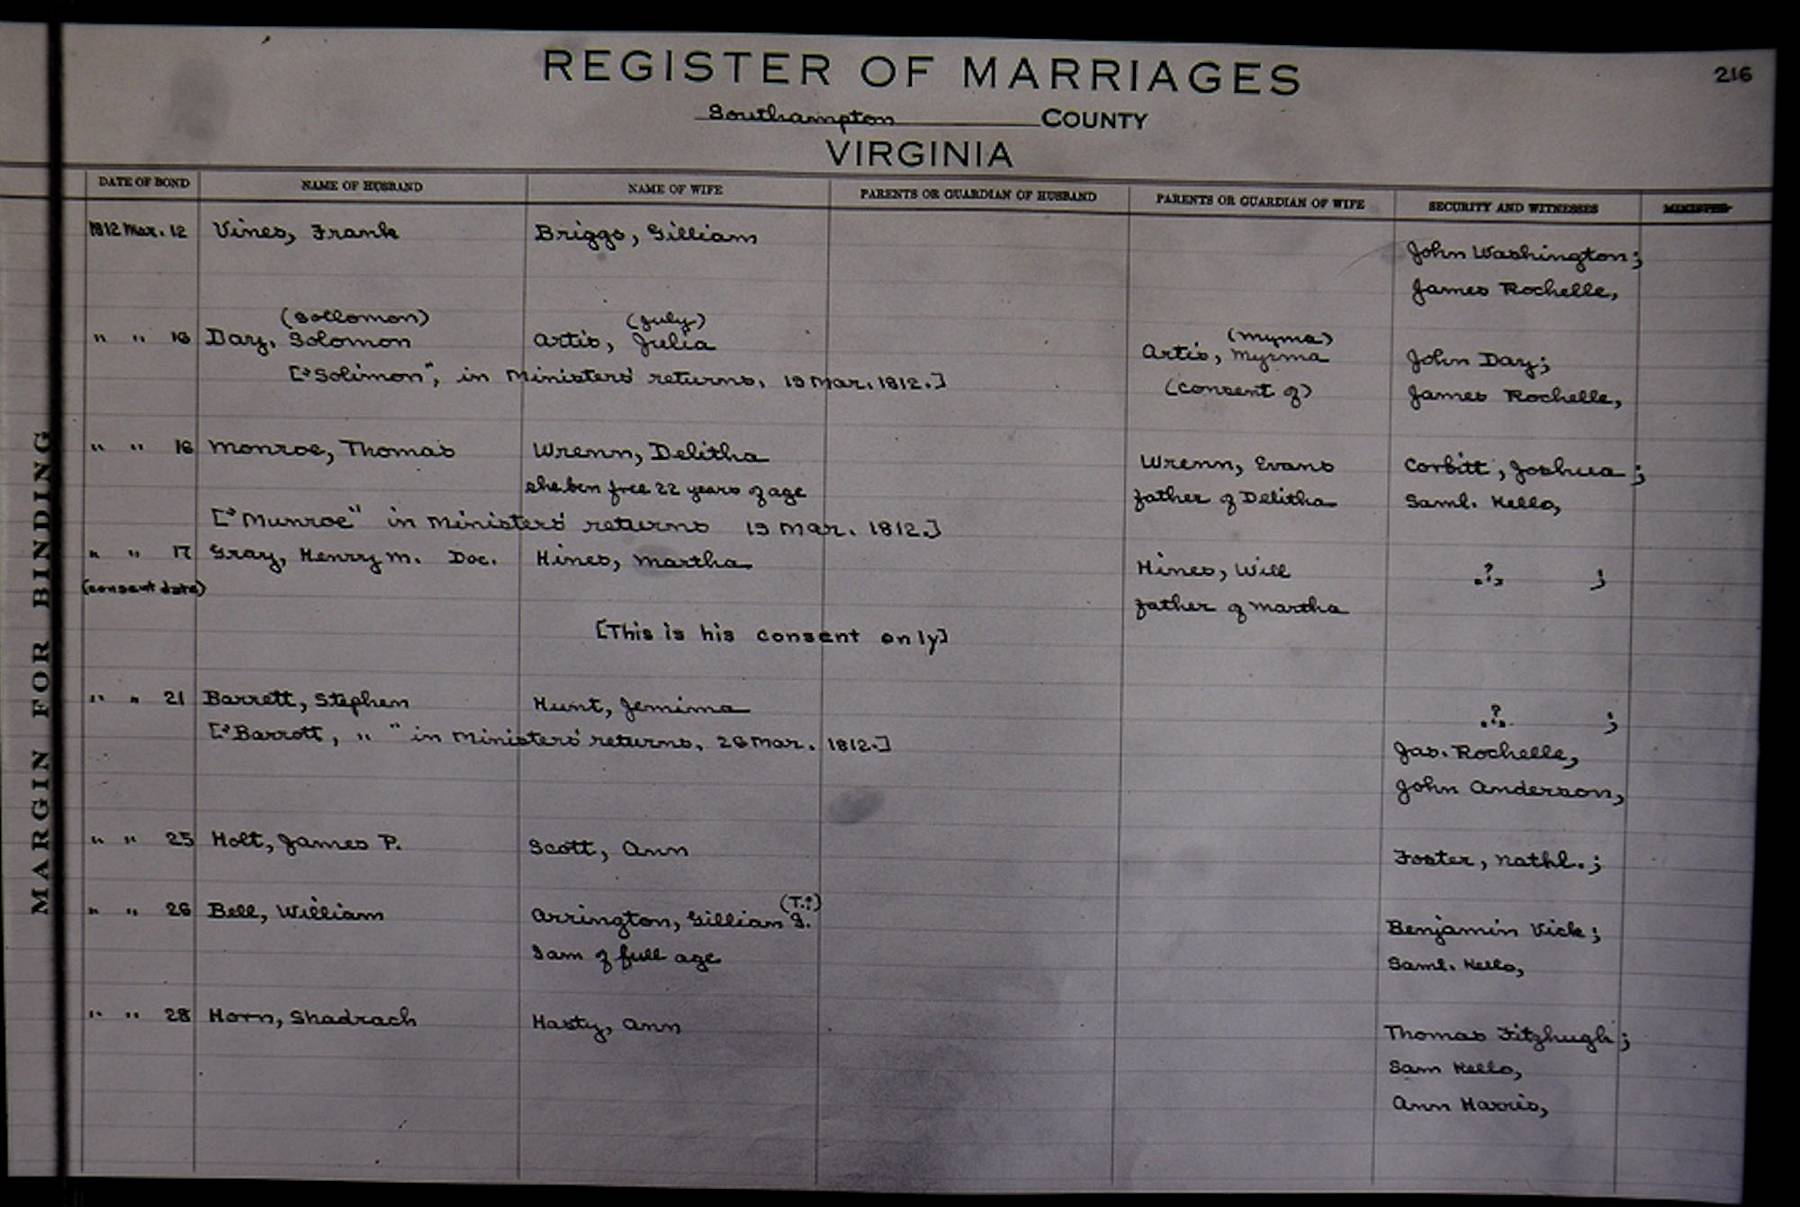 216
REGISTER OF MARRIAGES
Southampton COUNTY
VIRGINIA
MARGIN FOR BINDING
DATE OF BOND NAME OF HUSBAND NAME OF WIFE PARENTS OR GUARDIAN OF HUSBAND PARENTS OR GUARDIAN OF WIFE SECURITY AND WITNESSES MINISTER
1812 Mar. 12 Vines, Frank Briggs, Gilliam
John Washington;
James Rochelle,
(Sollomon) (July) (Myma)
" " 16 Day, Solomon Artis, Julia Artis, Myrma John Day;
["Solimon", in Ministers' returns, 19 Mar. 1812.] (consent of) James Rochelle,
" " 16 Monroe, Thomas Wrenn, Delitha Wrenn, Evans Corbitt, Joshua;
she ben free 22 years of age father of Delitha Saml. Kello,
["Munroe" in Ministers' returns 19 Mar. 1812.]
" " 17 Gray, Henry M. Doc. Hines, Martha Hines, Will ..?.. ;
(consent date) father of Martha
[This is his consent only]
" " 21 Barrett, Stephen Hunt, Jemima ..?.. ;
["Barrott, " " in Ministers' returns, 26 Mar. 1812.] Jas. Rochelle,
John Anderson,
" " 25 Holt, James P. Scott, Ann Foster, Nathl.;
(T.?)
" " 26 Bell, William Arrington, Gilliam S. Benjamin Vick;
I am of full age Saml. Kello,
" " 28 Horn, Shadrach Hasty, Ann Thomas Fitzhugh;
Sam Kello,
Ann Harris,